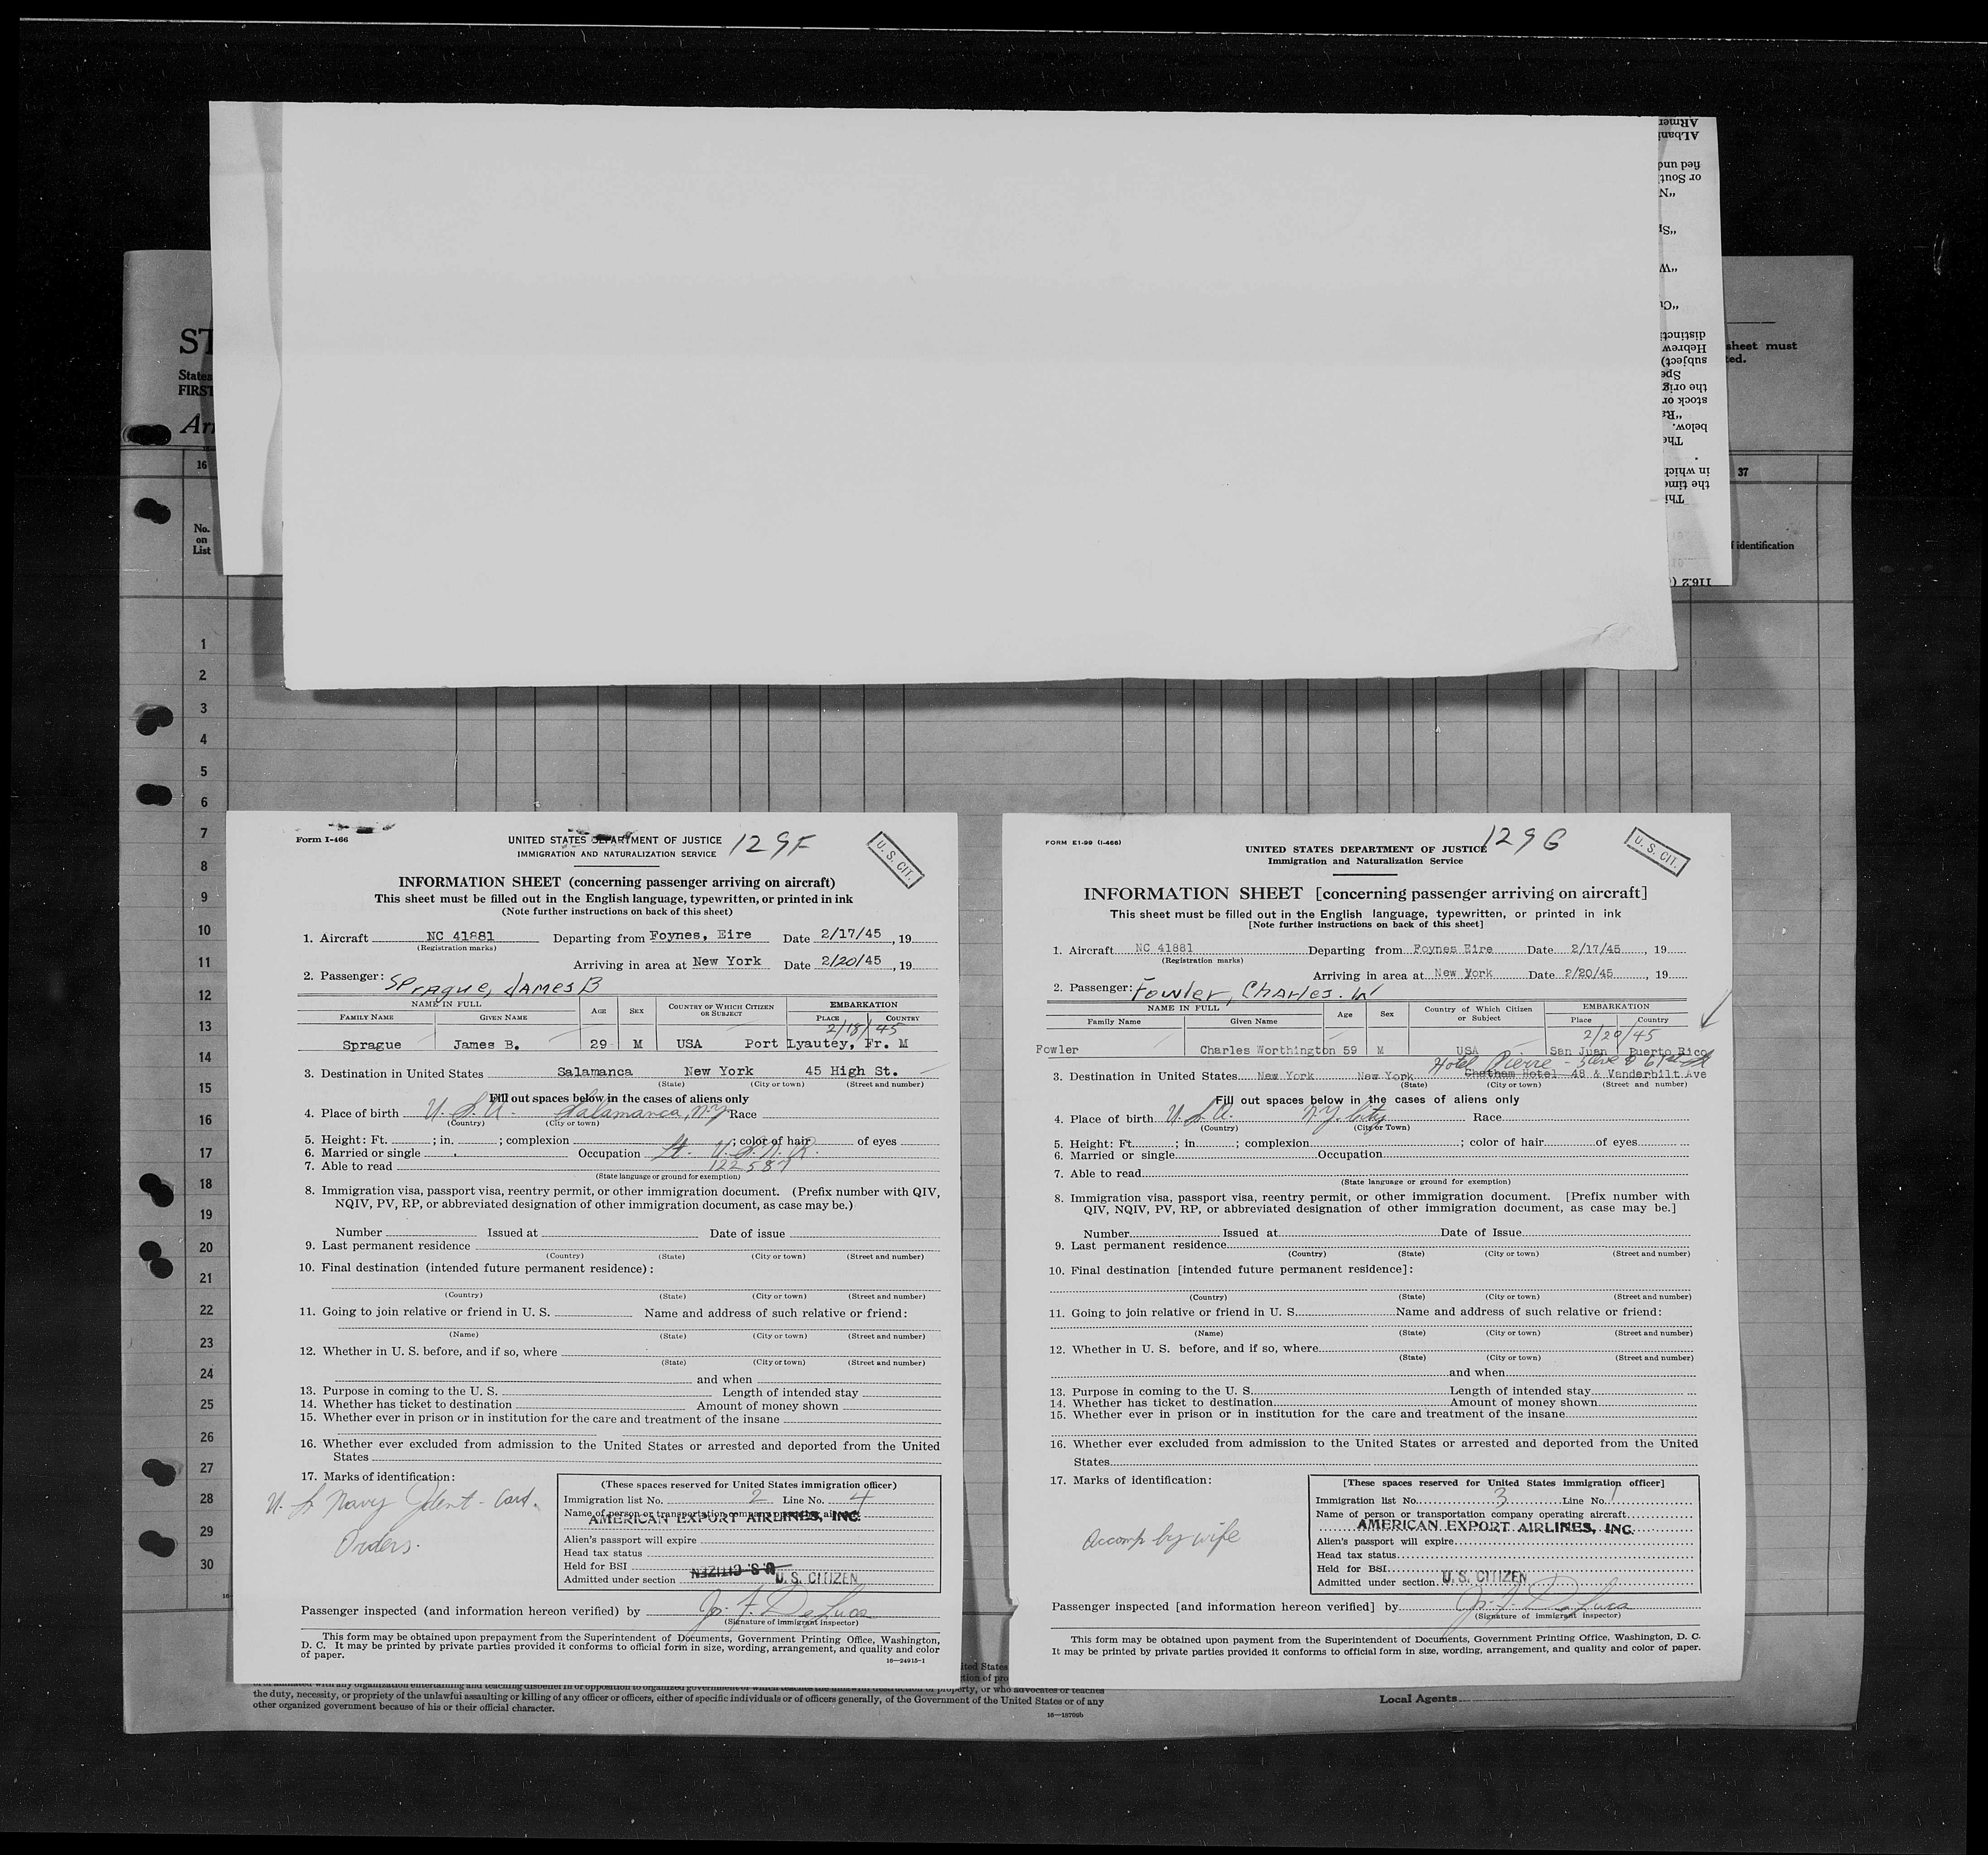 ARmen
ALbani
fied und
or South
"N
"Sp
"W
"Cu
distincti
Hebrew
subject)
Spe
the orig
stock or
"Ra
below.
The
in which
the time
Thi
116.2 (
ST
States
FIRST
Arr
sheet must
ted.
16
37
No.
on
List
f identification
1
2
3
4
5
6
7
8
9
10
11
12
13
14
15
16
17
18
19
20
21
22
23
24
25
26
27
28
29
30
Form I-466
UNITED STATES DEPARTMENT OF JUSTICE
129F
U. S. CIT.
IMMIGRATION AND NATURALIZATION SERVICE
INFORMATION SHEET (concerning passenger arriving on aircraft)
This sheet must be filled out in the English language, typewritten, or printed in ink
(Note further instructions on back of this sheet)
1. Aircraft NC 41881 Departing from Foynes, Eire Date 2/17/45, 19
(Registration marks)
Arriving in area at New York Date 2/20/45, 19
2. Passenger: Sprague, James B
NAME IN FULL AGE SEX COUNTRY OF WHICH CITIZEN OR SUBJECT EMBARKATION
FAMILY NAME GIVEN NAME PLACE COUNTRY
2/18/45
Sprague James B. 29 M USA Port Lyautey, Fr. M
3. Destination in United States Salamanca New York 45 High St.
(State) (City or town) (Street and number)
Fill out spaces below in the cases of aliens only
4. Place of birth U.S.A. Salamanca, N.Y. Race
(Country) (City or town)
5. Height: Ft. ; in. ; complexion ; color of hair of eyes
6. Married or single Occupation Lt. U.S.N.R.
7. Able to read 122587
(State language or ground for exemption)
8. Immigration visa, passport visa, reentry permit, or other immigration document. (Prefix number with QIV,
NQIV, PV, RP, or abbreviated designation of other immigration document, as case may be.)
Number Issued at Date of issue
9. Last permanent residence
(Country) (State) (City or town) (Street and number)
10. Final destination (intended future permanent residence):
(Country) (State) (City or town) (Street and number)
11. Going to join relative or friend in U. S. Name and address of such relative or friend:
(Name) (State) (City or town) (Street and number)
12. Whether in U. S. before, and if so, where
(State) (City or town) (Street and number)
and when
13. Purpose in coming to the U. S. Length of intended stay
14. Whether has ticket to destination Amount of money shown
15. Whether ever in prison or in institution for the care and treatment of the insane
16. Whether ever excluded from admission to the United States or arrested and deported from the United
States
17. Marks of identification:
U.S. Navy Ident-Card.
Orders.
(These spaces reserved for United States immigration officer)
Immigration list No. 2 Line No. 4
Name of person or transportation company operating aircraft
AMERICAN EXPORT AIRLINES, INC.
Alien's passport will expire
Head tax status
Held for BSI U.S. CITIZEN
Admitted under section U.S. CITIZEN
Passenger inspected (and information hereon verified) by Jos. F. DeLuca
(Signature of immigrant inspector)
This form may be obtained upon prepayment from the Superintendent of Documents, Government Printing Office, Washington,
D. C. It may be printed by private parties provided it conforms to official form in size, wording, arrangement, and quality and color
of paper.
16—24915-1
FORM E1-99 (I-466)
129G
U. S. CIT.
UNITED STATES DEPARTMENT OF JUSTICE
Immigration and Naturalization Service
INFORMATION SHEET [concerning passenger arriving on aircraft]
This sheet must be filled out in the English language, typewritten, or printed in ink
[Note further instructions on back of this sheet]
1. Aircraft NC 41881 Departing from Foynes Eire Date 2/17/45, 19
(Registration marks)
Arriving in area at New York Date 2/20/45, 19
2. Passenger: Fowler, Charles. W
NAME IN FULL Age Sex Country of Which Citizen or Subject EMBARKATION
Family Name Given Name Place Country
2/20/45
Fowler Charles Worthington 59 M USA San Juan Puerto Rico
Hotel Pierre - 5 Ave & 61st St
3. Destination in United States New York New York Chatham Hotel 48 & Vanderbilt Ave
(State) (City or town) (Street and number)
Fill out spaces below in the cases of aliens only
4. Place of birth U.S.A. N.Y. City Race
(Country) (City or Town)
5. Height: Ft. ; in ; complexion ; color of hair of eyes
6. Married or single Occupation
7. Able to read
(State language or ground for exemption)
8. Immigration visa, passport visa, reentry permit, or other immigration document. [Prefix number with
QIV, NQIV, PV, RP, or abbreviated designation of other immigration document, as case may be.]
Number Issued at Date of Issue
9. Last permanent residence
(Country) (State) (City or town) (Street and number)
10. Final destination [intended future permanent residence]:
(Country) (State) (City or town) (Street and number)
11. Going to join relative or friend in U. S. Name and address of such relative or friend:
(Name) (State) (City or town) (Street and number)
12. Whether in U. S. before, and if so, where
(State) (City or town) (Street and number)
and when
13. Purpose in coming to the U. S. Length of intended stay
14. Whether has ticket to destination Amount of money shown
15. Whether ever in prison or in institution for the care and treatment of the insane
16. Whether ever excluded from admission to the United States or arrested and deported from the United
States
17. Marks of identification:
Accomp by wife
[These spaces reserved for United States immigration officer]
Immigration list No. 3 Line No. 1
Name of person or transportation company operating aircraft
AMERICAN EXPORT AIRLINES, INC.
Alien's passport will expire
Head tax status
Held for BSI
Admitted under section U.S. CITIZEN
Passenger inspected [and information hereon verified] by Jos. F. DeLuca
(Signature of immigrant inspector)
This form may be obtained upon payment from the Superintendent of Documents, Government Printing Office, Washington, D. C.
It may be printed by private parties provided it conforms to official form in size, wording, arrangement, and quality and color of paper.
ited States
the duty, necessity, or propriety of the unlawful assaulting or killing of any officer or officers, either of specific individuals or of officers generally, of the Government of the United States or of any
other organized government because of his or their official character.
16—18709b
Local Agents